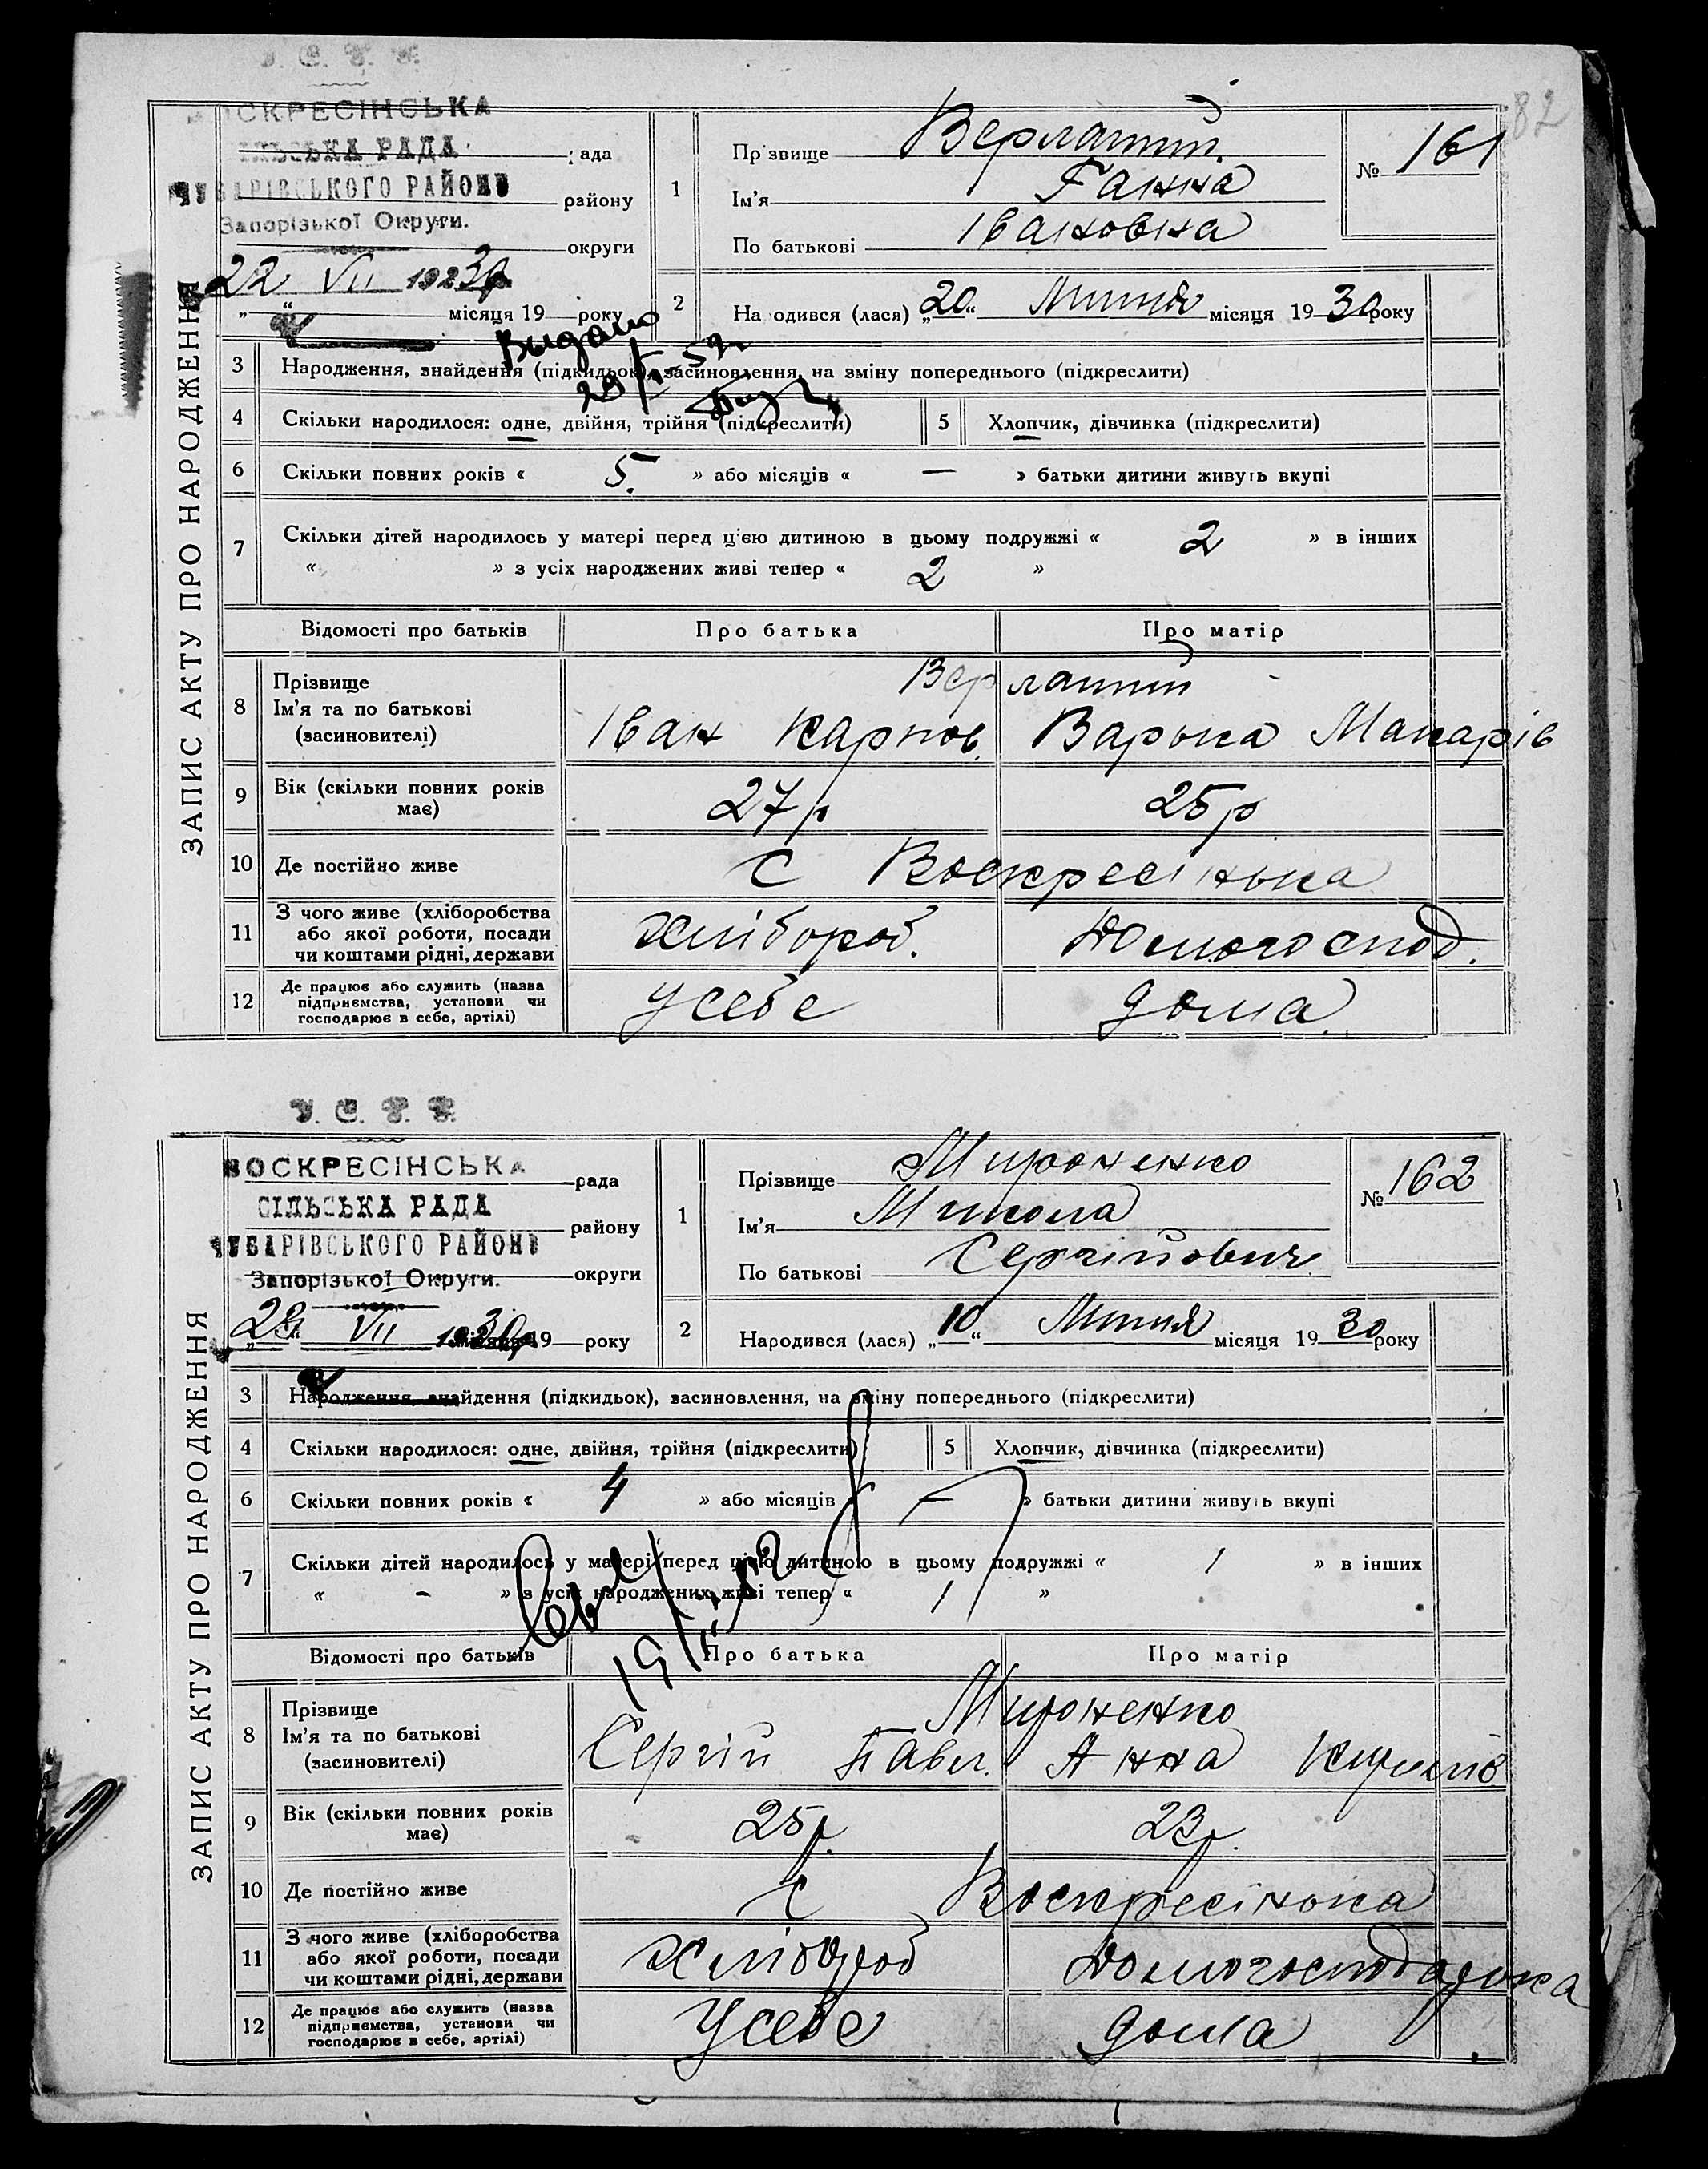 82
У. С. Р. Р.
ВОСКРЕСІНСЬКА
СІЛЬСЬКА РАДА рада
ЧУБАРІВСЬКОГО РАЙОНУ району
Запорізької Округи.
округи
22 VII 1930
„ “ місяця 19 року
ЗАПИС АКТУ ПРО НАРОДЖЕННЯ
1 Прізвище Верлатий
Ім'я Ганна
По батькові Івановна
№ 161
2 На одився (лася) „20“ Липня місяця 1930 року
Выдано
3 Народження, знайдення (підкидьок), засиновлення, на зміну попереднього (підкреслити)
4 Скільки народилося: одне, двійня, трійня (підкреслити) 5 Хлопчик, дівчинка (підкреслити)
6 Скільки повних років « 5. » або місяців « — » батьки дитини живуть вкупі
7 Скільки дітей народилось у матері перед ц'єю дитиною в цьому подружжі « 2 » в інших
« » з усіх народжених живі тепер « 2 »
Відомості про батьків Про батька Про матір
8 Прізвище Верлатий
Ім'я та по батькові Іван Карпов. Варька Макарів
(засиновителі)
9 Вік (скільки повних років має) 27 р 25 р
10 Де постійно живе С Воскресінька
11 З чого живе (хліборобства
або якої роботи, посади хлібороб. Домогоспод.
чи коштами рідні, держави
12 Де працює або служить (назва
підприємства, установи чи усебе дома
господарює в себе, артілі)
У. С. Р. Р.
ВОСКРЕСІНСЬКА рада
СІЛЬСЬКА РАДА
району
ЧУБАРІВСЬКОГО РАЙОНУ
Запорізької Округи. округи
VII 1930 місяця 19 року
ЗАПИС АКТУ ПРО НАРОДЖЕННЯ
1 Прізвище Мироненко
Ім'я Микола
По батькові Сергійович
№ 162
2 Народився (лася) „10“ Липня місяця 1930 року
3 Народження, знайдення (підкидьок), засиновлення, на зміну попереднього (підкреслити)
4 Скільки народилося: одне, двійня, трійня (підкреслити) 5 Хлопчик, дівчинка (підкреслити)
6 Скільки повних років « 4 » або місяців « — » батьки дитини живуть вкупі
7 Скільки дітей народилось у матері перед цією дитиною в цьому подружжі « 1 » в інших
« - » з усіх народжених живі тепер « 1 »
Відомості про батьків Про батька Про матір
8 Прізвище Мироненко
Ім'я та по батькові Сергій Павл. Анна
(засиновителі)
9 Вік (скільки повних років має) 25 р 23 р.
10 Де постійно живе С Воскресінька
11 З чого живе (хліборобства
або якої роботи, посади хлібороб Домогосподарька
чи коштами рідні, держави
12 Де працює або служить (назва
підприємства, установи чи усебе дома
господарює в себе, артілі)